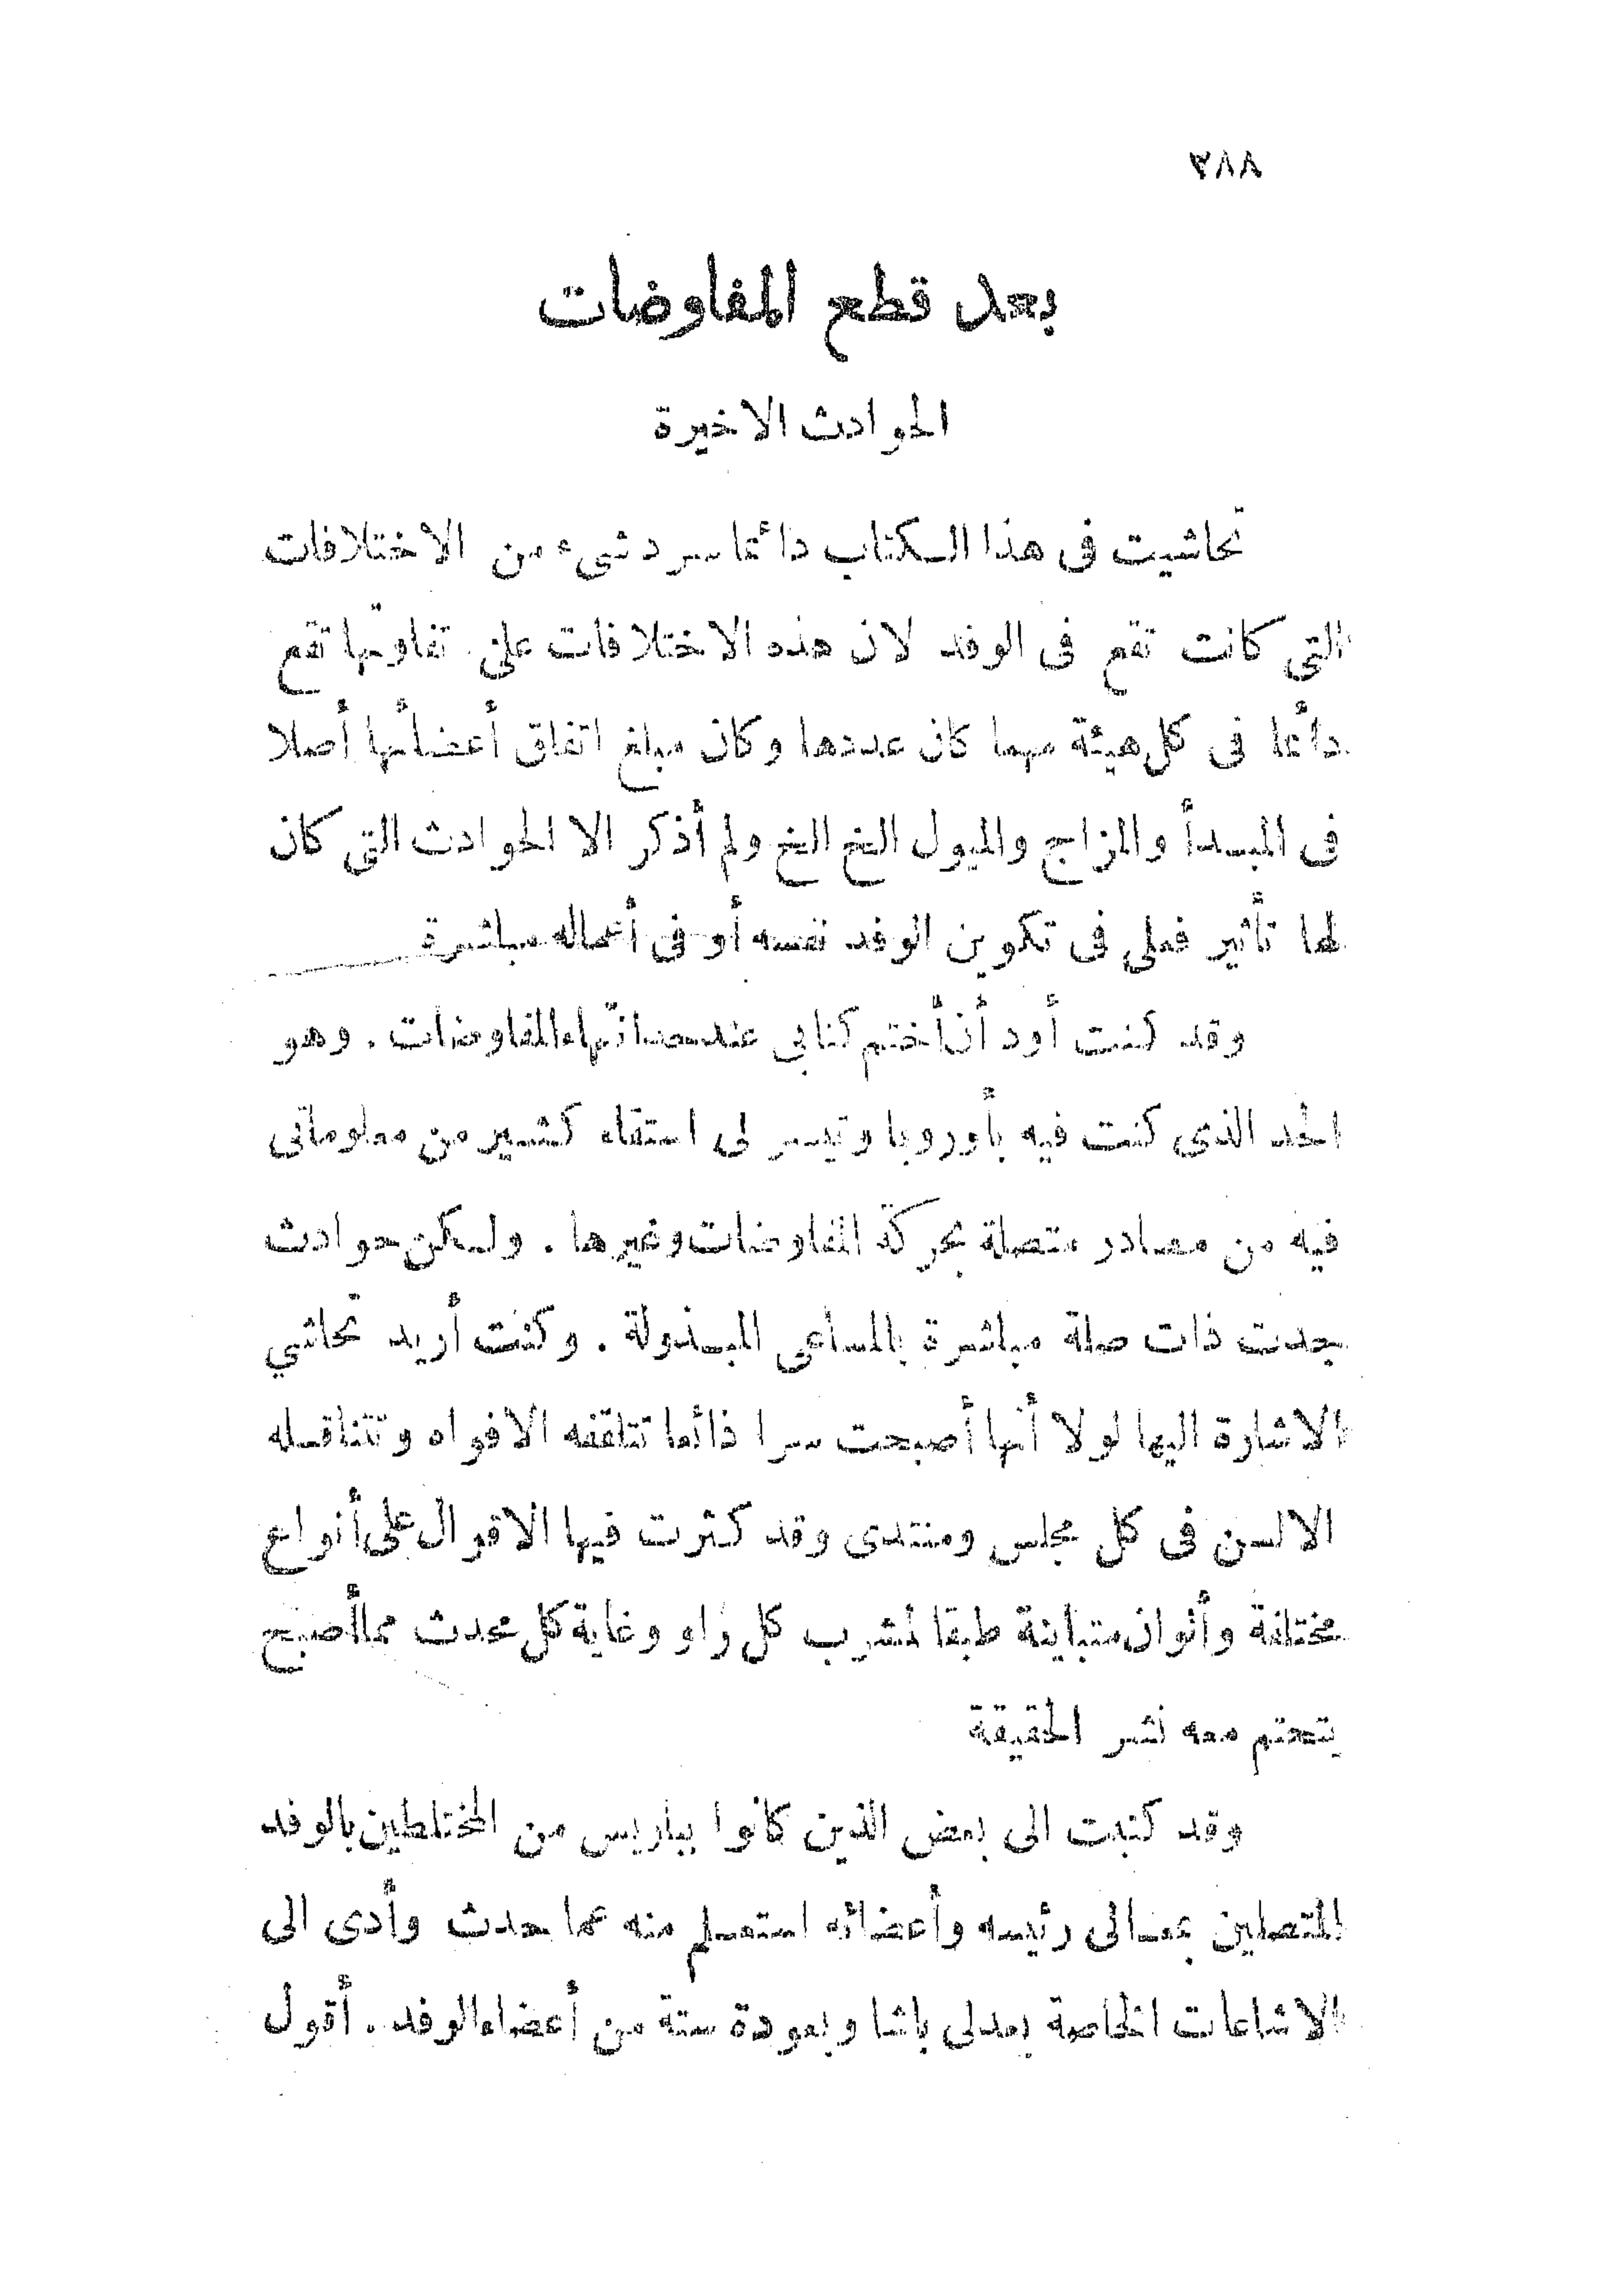 ٣٨٨
بعد قطع المفاوضات
الحوادث الاخيرة
تحاشيت فى هذا الكتاب دائما سرد شىء من الاختلافات
التى كانت تقع فى الوفد لان هذه الاختلافات على تفاوتها تقع
دائما فى كل هيئة مهما كان عددها وكان مبلغ اتفاق أعضائها أصلا
فى المبدأ والمزاج والميول الخ الخ ولم أذكر الا الحوادث التى كان
لها تأثير فعلى فى تكوين الوفد نفسه أو فى أعماله مباشرة
وقد كنت أود أن أختم كتابى عند حد انتهاء المفاوضات . وهو
الحد الذى كنت فيه بأوروبا وتيسر لى استقاء كثير من معلوماتى
فيه من مصادر متصلة بحركة المفاوضات وغيرها . ولكن حوادث
جدت ذات صلة مباشرة بالمساعى المبذولة . وكنت أريد تحاشي
الاشارة اليها لولا أنها أصبحت سرا ذائعا تتلقفه الافواه وتتناقله
الالسن فى كل مجلس ومنتدى وقد كثرت فيها الاقوال على أنواع
مختلفة وألوان متباينة طبقا لمشرب كل راو وغاية كل محدث مما أصبح
يتحتم معه نشر الحقيقة
وقد كتبت الى بعض الذين كانوا بباريس من المختلطين بالوفد
المتصلين بمعالى رئيسه وأعضائه استعلم منه عما حدث وأدى الى
الاشاعات الخاصة بعدلى باشا وبعودة ستة من أعضاء الوفد . أقول